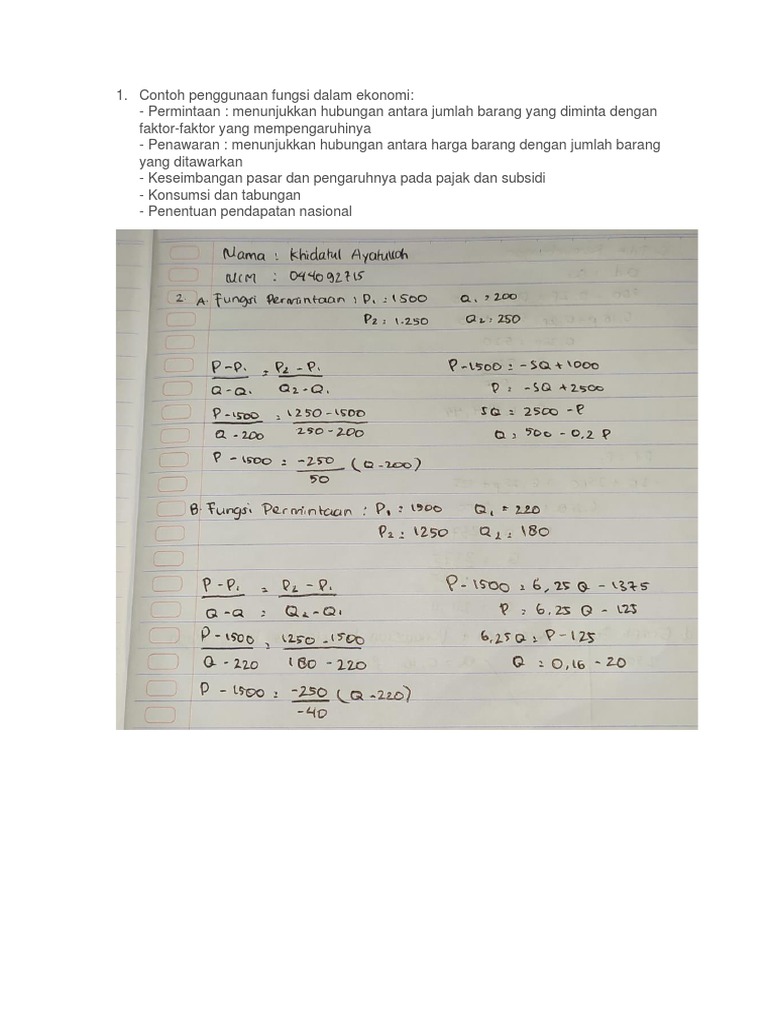 1. Contoh penggunaan fungsi dalam ekonomi:
- Permintaan : menunjukkan hubungan antara jumlah barang yang diminta dengan
faktor-faktor yang mempengaruhinya
- Penawaran : menunjukkan hubungan antara harga barang dengan jumlah barang
yang ditawarkan
- Keseimbangan pasar dan pengaruhnya pada pajak dan subsidi
- Konsumsi dan tabungan
- Penentuan pendapatan nasional
Nama : Khidatul Ayatulloh
NIM : 044092715
2 A. Fungsi Permintaan : P₁ = 1500 Q₁ = 200
P₂ = 1.250 Q₂ = 250
P-P₁ = P₂ - P₁ P-1500 = -5Q+1000
Q-Q₁ Q₂-Q₁ P = -5Q +2500
P-1500 = 1250-1500 5Q = 2500 -P
Q - 200 250 - 200 Q = 500 - 0,2 P
P - 1500 = -250 (Q-200)
50
B. Fungsi Permintaan : P₁ = 1500 Q₁ = 220
P₂ = 1250 Q₂ = 180
P-P₁ = P₂ - P₁ P-1500 = 6,25 Q - 1375
Q-Q = Q₂-Q₁ P = 6,25 Q - 125
P-1500 = 1250 - 1500 6,25Q = P-125
Q - 220 180 - 220 Q = 0,16 - 20
P - 1500 = -250 (Q-220)
-40